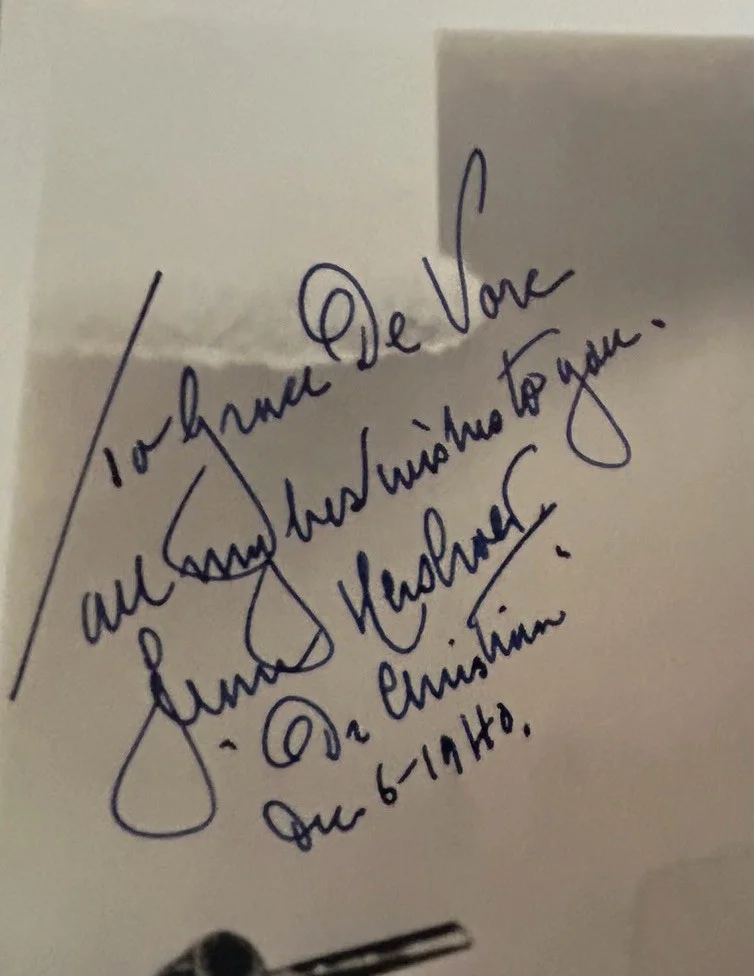 To Grace De Vore
all my best wishes to you.
Jean Hersholt
"Dr Christian"
Dec 6-1940.